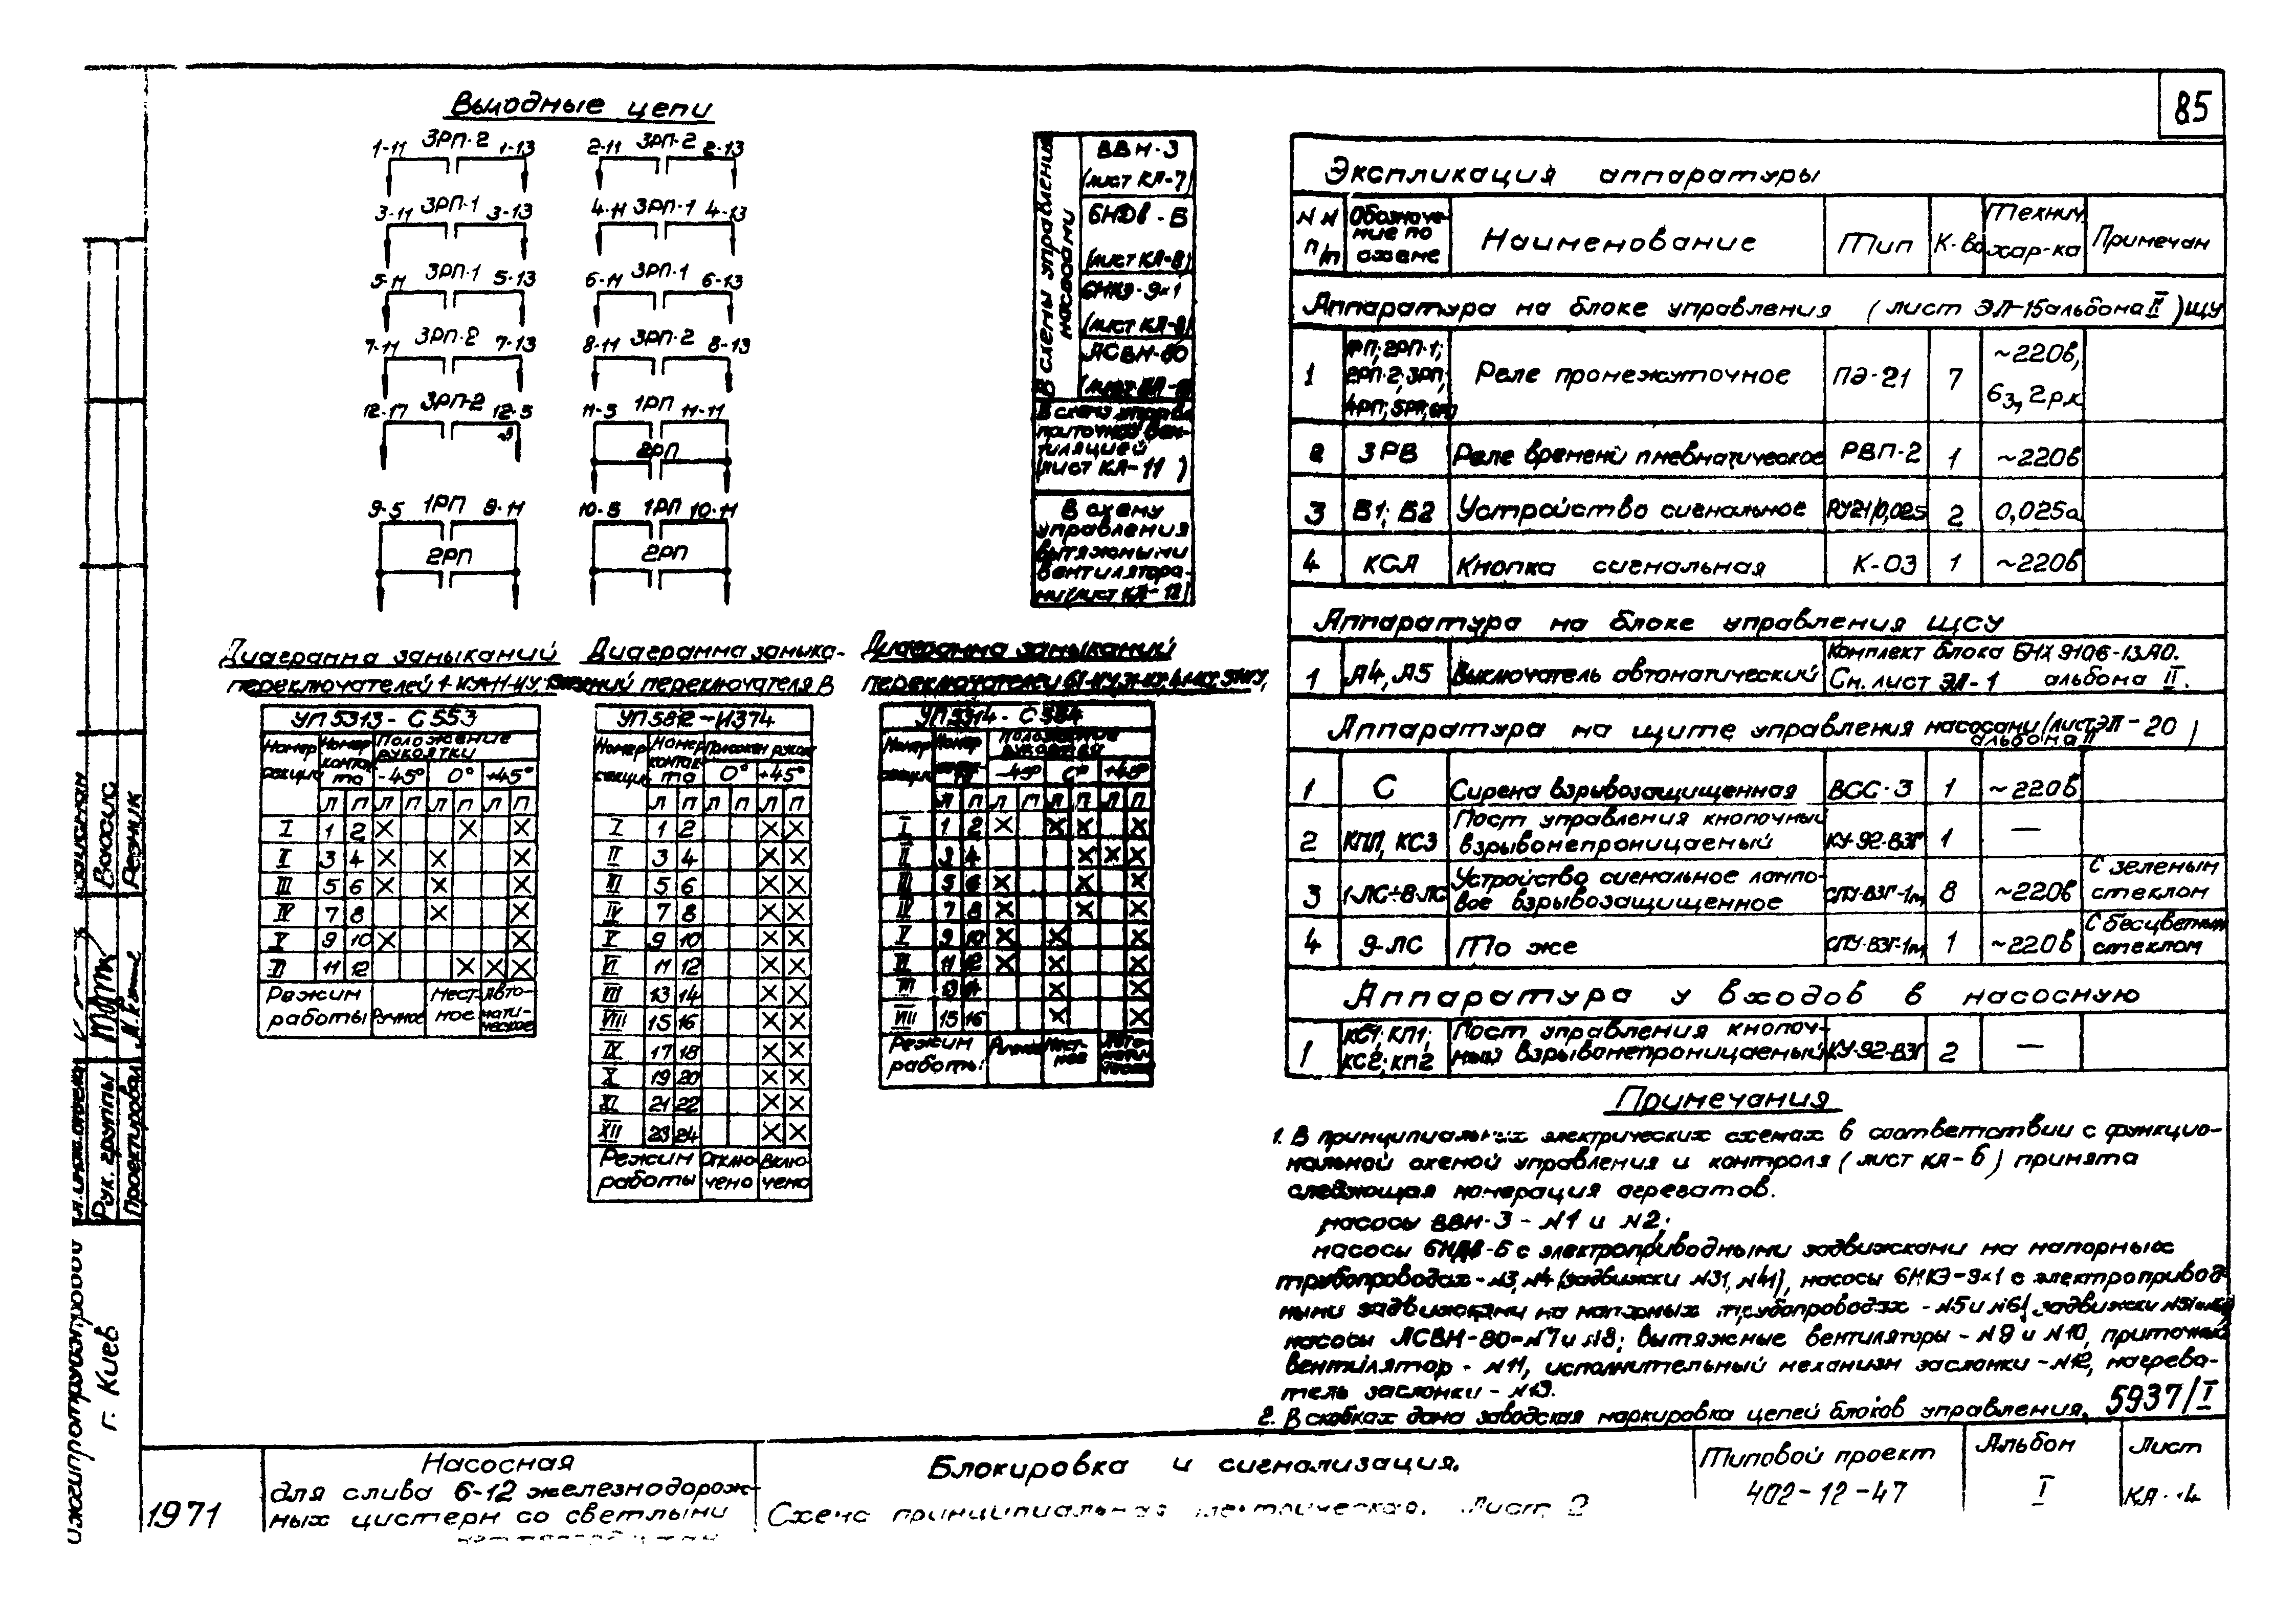 85
Выходные цепи
1-11 3РП-2 1-13
2-11 3РП-2 2-13
3-11 3РП-1 3-13
4-11 3РП-1 4-13
5-11 3РП-1 5-13
6-11 3РП-1 6-13
7-11 3РП-2 7-13
8-11 3РП-2 8-13
12-17 3РП-2 12-5
11-5 1РП 11-11
2РП
9-5 1РП 9-11
2РП
10-5 1РП 10-11
2РП
В схемы управления
насосами
ВВН-3
(лист КА-7)
6НДв-Б
(лист КА-8)
6НКЭ-9×1
ЛСВН-80
В схему управл.
приточной вен-
тиляцией
(лист КА-11)
В схему
управления
вытяжными
вентилятора-
ми (лист КА-12)
Диаграмма замыканий
УП 5313-С553
Номер секции
Номер контакта
Положение рукоятки
-45° 0° +45°
Л П Л П Л П Л П
I 1 2 × × ×
II 3 4 × × ×
III 5 6 × × ×
IV 7 8 × ×
V 9 10 × ×
VI 11 12 × × ×
Режим работы Ручное Местное Автоматическое
Диаграмма замыка-
ний переключателя В
УП 5812-И374
Номер секции
Номер контакта
Положен. рукоя
0° +45°
Л П Л П Л П
I 1 2 × ×
II 3 4 × ×
III 5 6 × ×
IV 7 8 × ×
V 9 10 × ×
VI 11 12 × ×
VII 13 14 × ×
VIII 15 16 × ×
IX 17 18 × ×
X 19 20 × ×
XI 21 22 × ×
XII 23 24 × ×
Режим работы Отключено Включено
Диаграмма замыканий
переключателей
УП 5314-С384
Номер секции
Положение рукоятки
-45° 0° +45°
Л П Л П Л П Л П
I 1 2 × × × ×
II 3 4 × × ×
III 5 6 × × ×
IV 7 8 × × ×
V 9 10 × × ×
VI 11 12 × × ×
VII 13 14 × ×
VIII 15 16 × ×
Режим работы Ручное Местное
Экспликация аппаратуры
NN п/п
Обозначение по схеме
Наименование
Тип
К-во
Технич. хар-ка
Примечан
Аппаратура на блоке управления (лист ЭЛ-15 альбома II) ЩУ
1 1РП; 2РП-1; 2РП-2; 3РП; 4РП; 5РП; 6РП Реле промежуточное ПЭ-21 7 ~220в, 6з, 2р.к
2 3РВ Реле времени пневматическое РВП-2 1 ~220в
3 Б1; Б2 Устройство сигнальное РУ21/0,025 2 0,025а
4 КСА Кнопка сигнальная К-03 1 ~220в
Аппаратура на блоке управления ЩСУ
1 А4, А5 Выключатель автоматический Комплект блока БНХ 9106-13А0.
См. лист ЭЛ-1 альбома II.
Аппаратура на щите управления насосами (лист ЭЛ-20)
альбома II
1 С Сирена взрывозащищенная ВСС-3 1 ~220в
2 КПП, КС3 Пост управления кнопочный взрывонепроницаемый КУ-92-ВЗГ 1 —
3 1-ЛС÷8-ЛС Устройство сигнальное лампо-
вое взрывозащищенное СПУ-ВЗГ-1м 8 ~220в С зеленым стеклом
4 9-ЛС То же СПУ-ВЗГ-1м 1 ~220в С бесцветным стеклом
Аппаратура у входов в насосную
1 КС1; КП1; КС2; КП2 Пост управления кнопоч-
ный взрывонепроницаемый КУ-92-ВЗГ 2 —
Примечания
1. В принципиальных электрических схемах в соответствии с функцио-
нальной схемой управления и контроля (лист КА-6) принята
следующая номерация агрегатов.
насосы ВВН-3 - N1 и N2;
насосы 6НДв-Б с электроприводными задвижками на напорных
трубопроводах - N3, N4 (задвижки N31, N41), насосы 6НКЭ-9×1 с электропривод-
ными задвижками на напорных трубопроводах - N5 и N6 (задвижки
насосы ЛСВН-80 - N7 и N8; вытяжные вентиляторы - N9 и N10, приточный
вентилятор - N11, исполнительный механизм заслонки - N12, нагрева-
тель заслонки - N13.
2. В скобках дана заводская маркировка цепей блоков управления.
5937/I
Вассис
Резник
Рук. группы
Проектировал
г. Киев
1971
Насосная
для слива 6-12 железнодорож-
ных цистерн со светлыми
Блокировка и сигнализация.
Схема принципиальная электрическая. Лист 2
Типовой проект
402-12-47
Альбом
I
Лист
КА-14